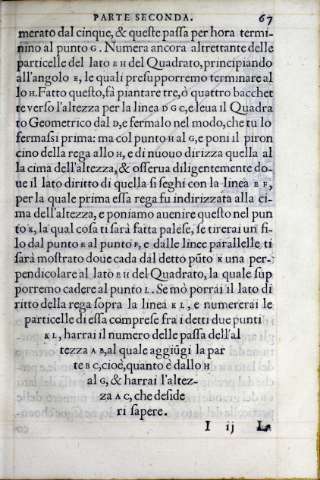 PARTE SECONDA. 67
merato dal cinque, & queste passa per hora termi-
nino al punto G. Numera ancora altrettante delle
particelle del lato E H del Quadrato, principiando
all'angolo E, le quali presupporremo terminare al
lo H. Fatto questo, fà piantare tre, ò quattro bacchet
te verso l'altezza per la linea D G C, e leua il Quadra
to Geometrico dal D, e fermalo nel modo, che tu lo
fermasti prima: ma col punto H al G, e poni il piron
cino della rega allo H, e di nuouo dirizza quella al
la cima dell'altezza, & osserua diligentemente do-
ue il lato diritto di quella si seghi con la linea E F,
per la quale prima essa rega fu indirizzata alla ci-
ma dell'altezza, e poniamo auenire questo nel pun
to K, la qual cosa ti sarà fatta palese, se tirerai un fi-
lo dal punto E al punto F, e dalle linee parallelle ti
sarà mostrato doue cada dal detto pūto K una per-
pendicolare al lato E H del Quadrato, la quale sup
porremo cadere al punto L. Se mò porrai il lato di
ritto della rega sopra la linea K L, e numererai le
particelle di essa comprese fra i detti due punti
K L, harrai il numero delle passa dell'al
tezza A B, al quale aggiūgi la par
te B C, cioè, quanto è dallo H
al G, & harrai l'altez-
za A C, che deside
ri sapere.
I ij La